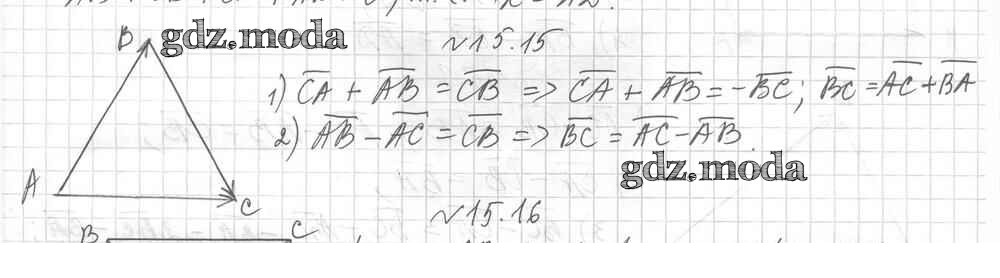 B gdz.moda №15.15
1) C̅A̅ + A̅B̅ = C̅B̅ => C̅A̅ + A̅B̅ = -B̅C̅; B̅C̅ = A̅C̅ + B̅A̅
2) A̅B̅ - A̅C̅ = C̅B̅ => B̅C̅ = A̅C̅ - A̅B̅.
gdz.moda
A C
№15.16
B C